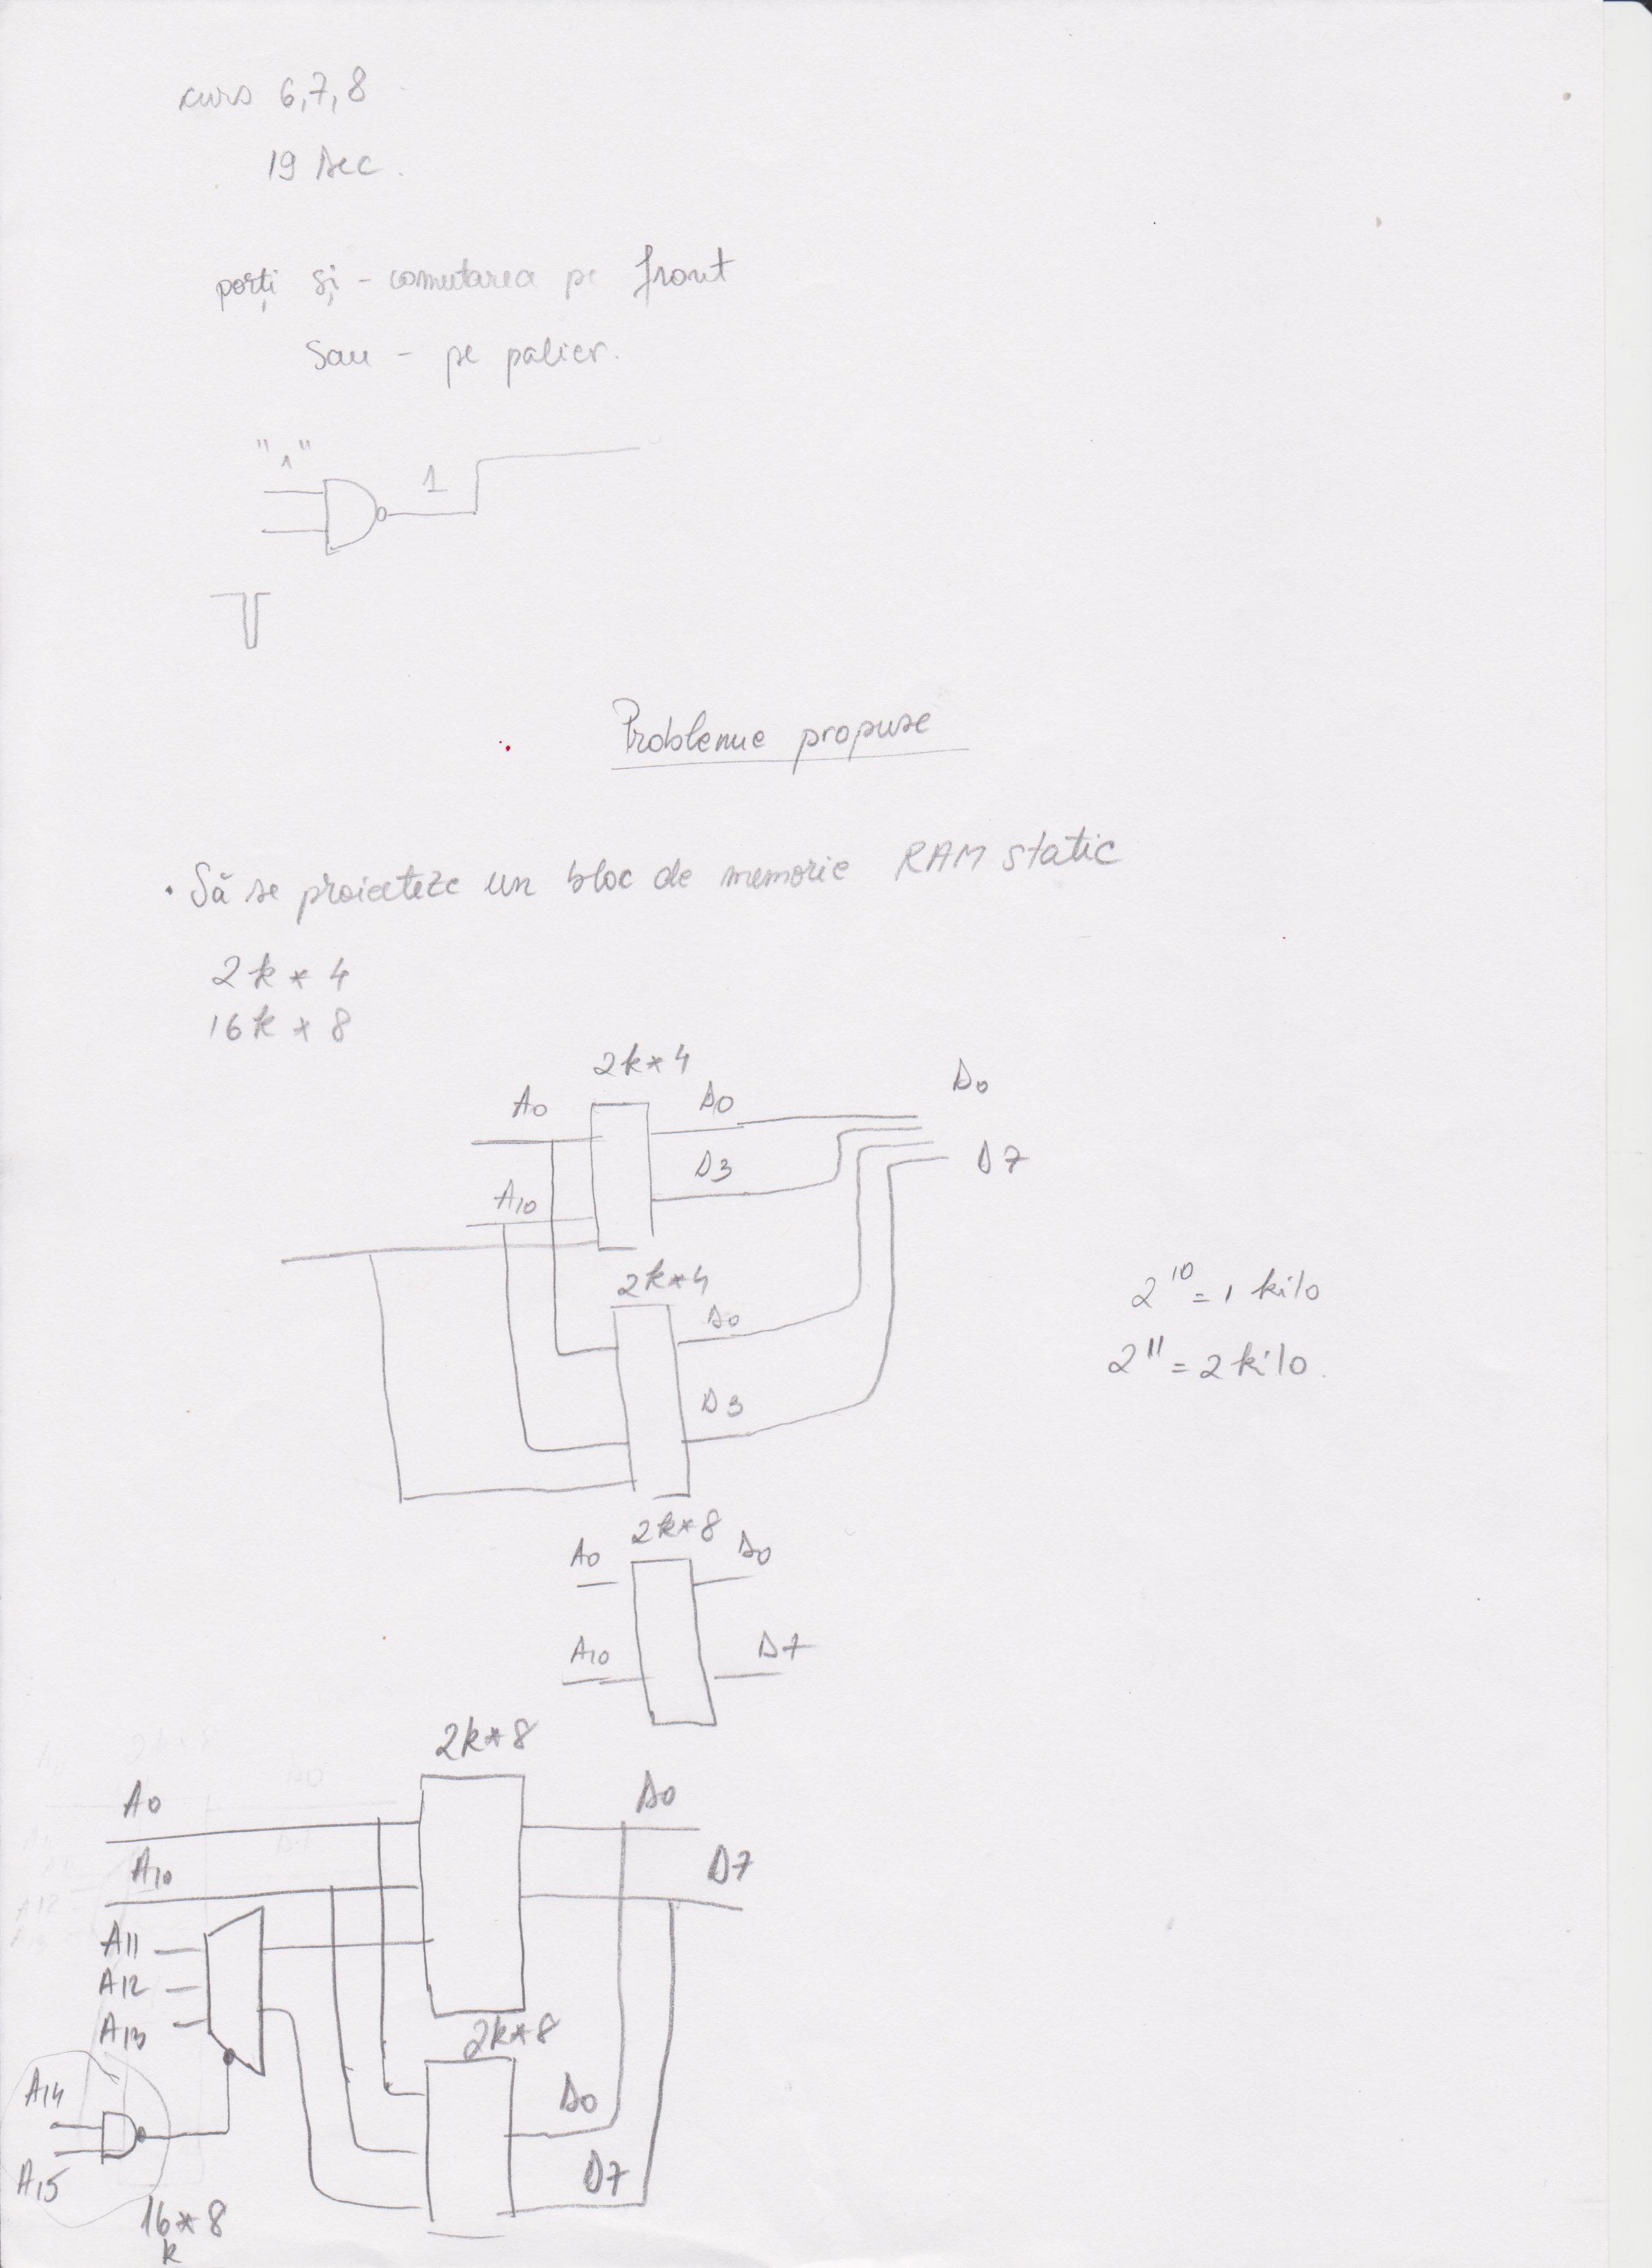 curs 6,7,8
19 Dec.
porți și - comutarea pe front
sau - pe palier.
"1"
1
Probleme propuse
• Să se proiecteze un bloc de memorie RAM static
2k * 4
16k * 8
2k*4
A0 D0 D0
D3 D7
A10
2k*4
D0
2^10 = 1 kilo
2^11 = 2 kilo.
D3
2k*8
A0 D0
A10 D7
2k*8
A0 D0
A10 D7
A11
A12
A13
2k*8
A14 D0
A15 D7
16*8
k